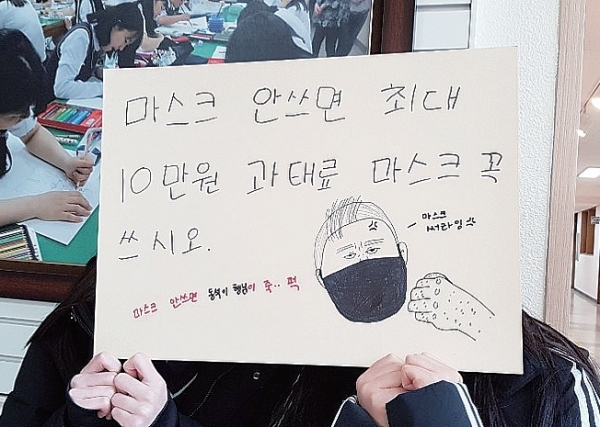 마스크 안쓰면 최대
10만원 과태료 마스크 꼭
쓰시오.
마스크
써라잉
마스크 안쓰면 동석이 형님이 죽.. 퍽